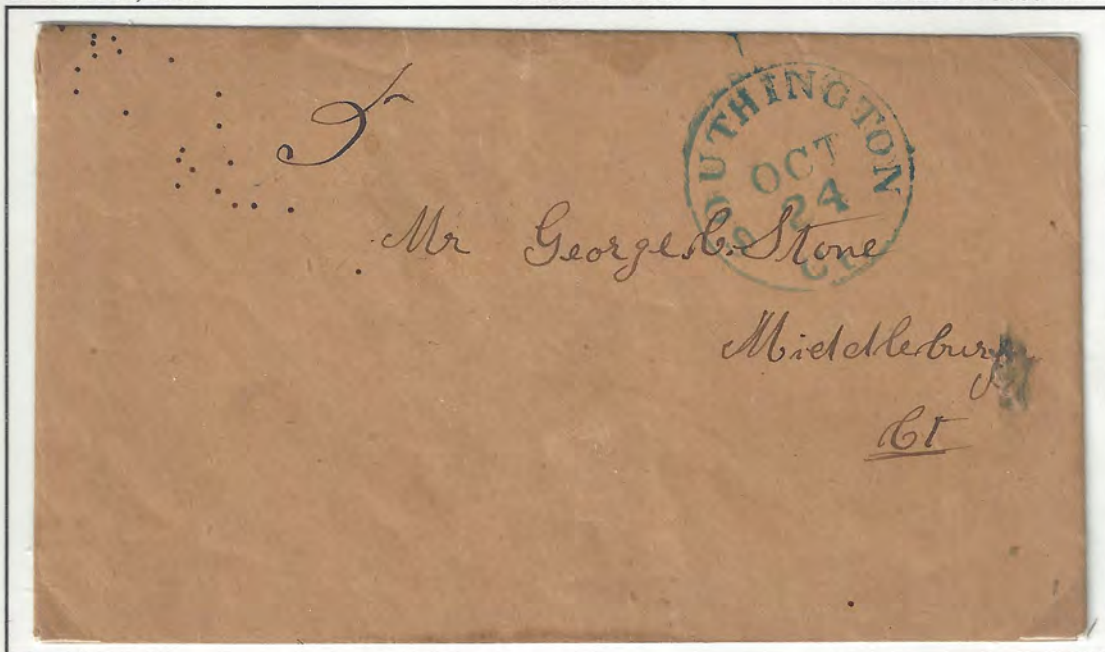 5
SOUTHINGTON
OCT
24
CT.
Mr George C. Stone
Middlebury
Ct